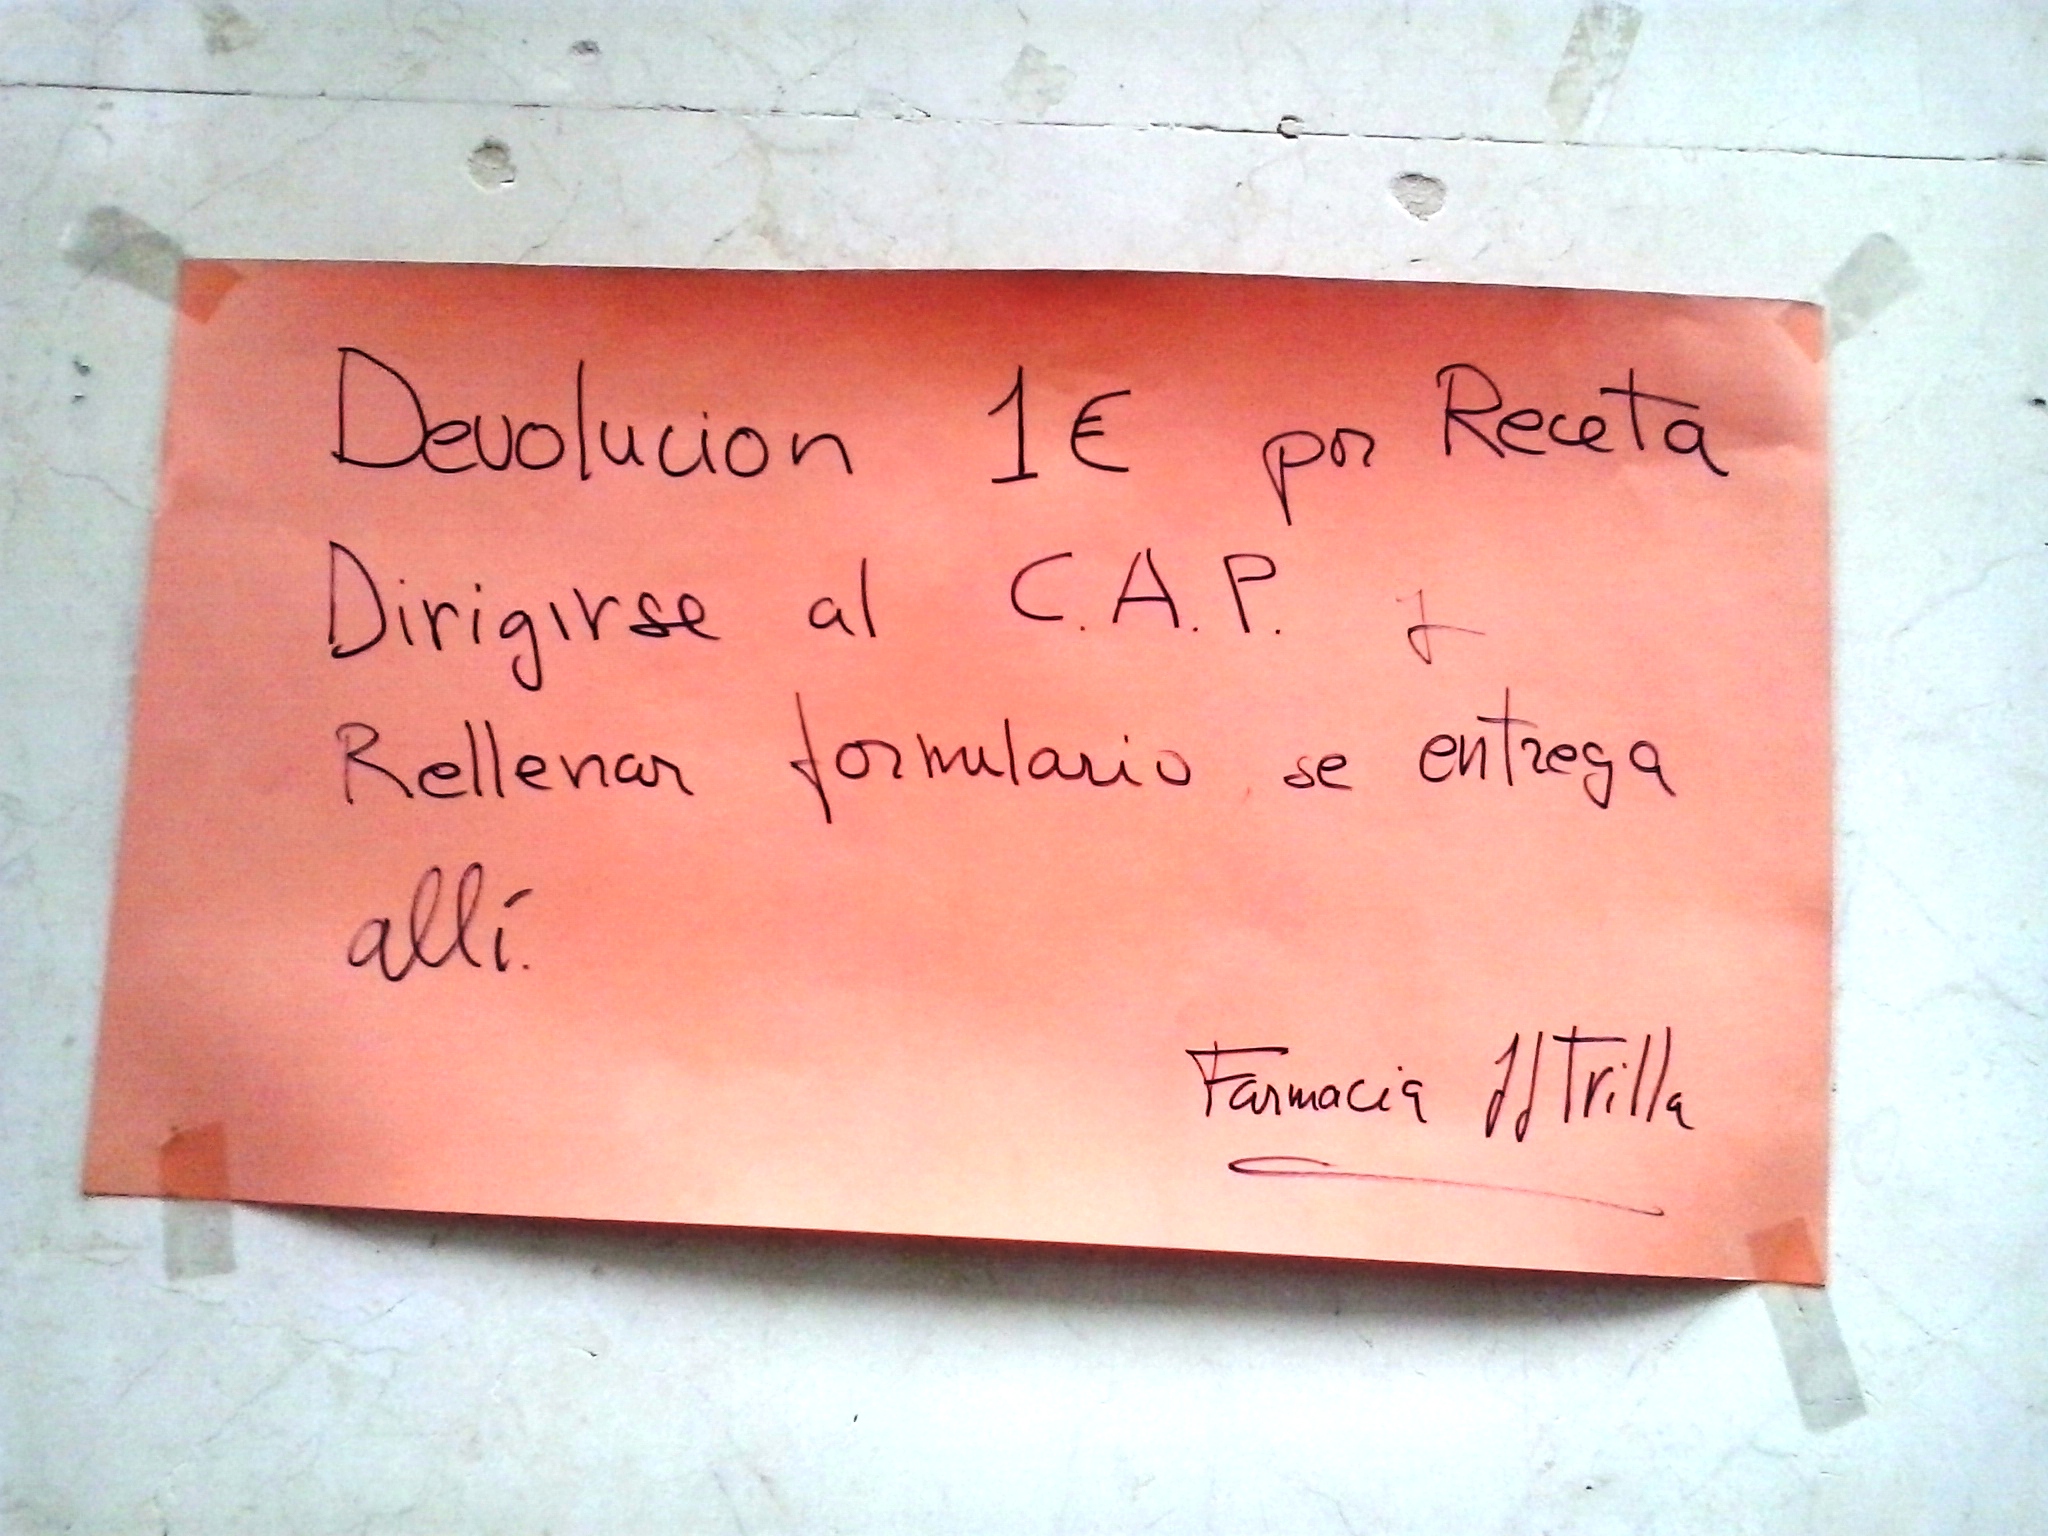 Devolucion 1€ por Receta
Dirigirse al C.A.P. y
Rellenar formulario se entrega
allí.
Farmacia JJ Trilla